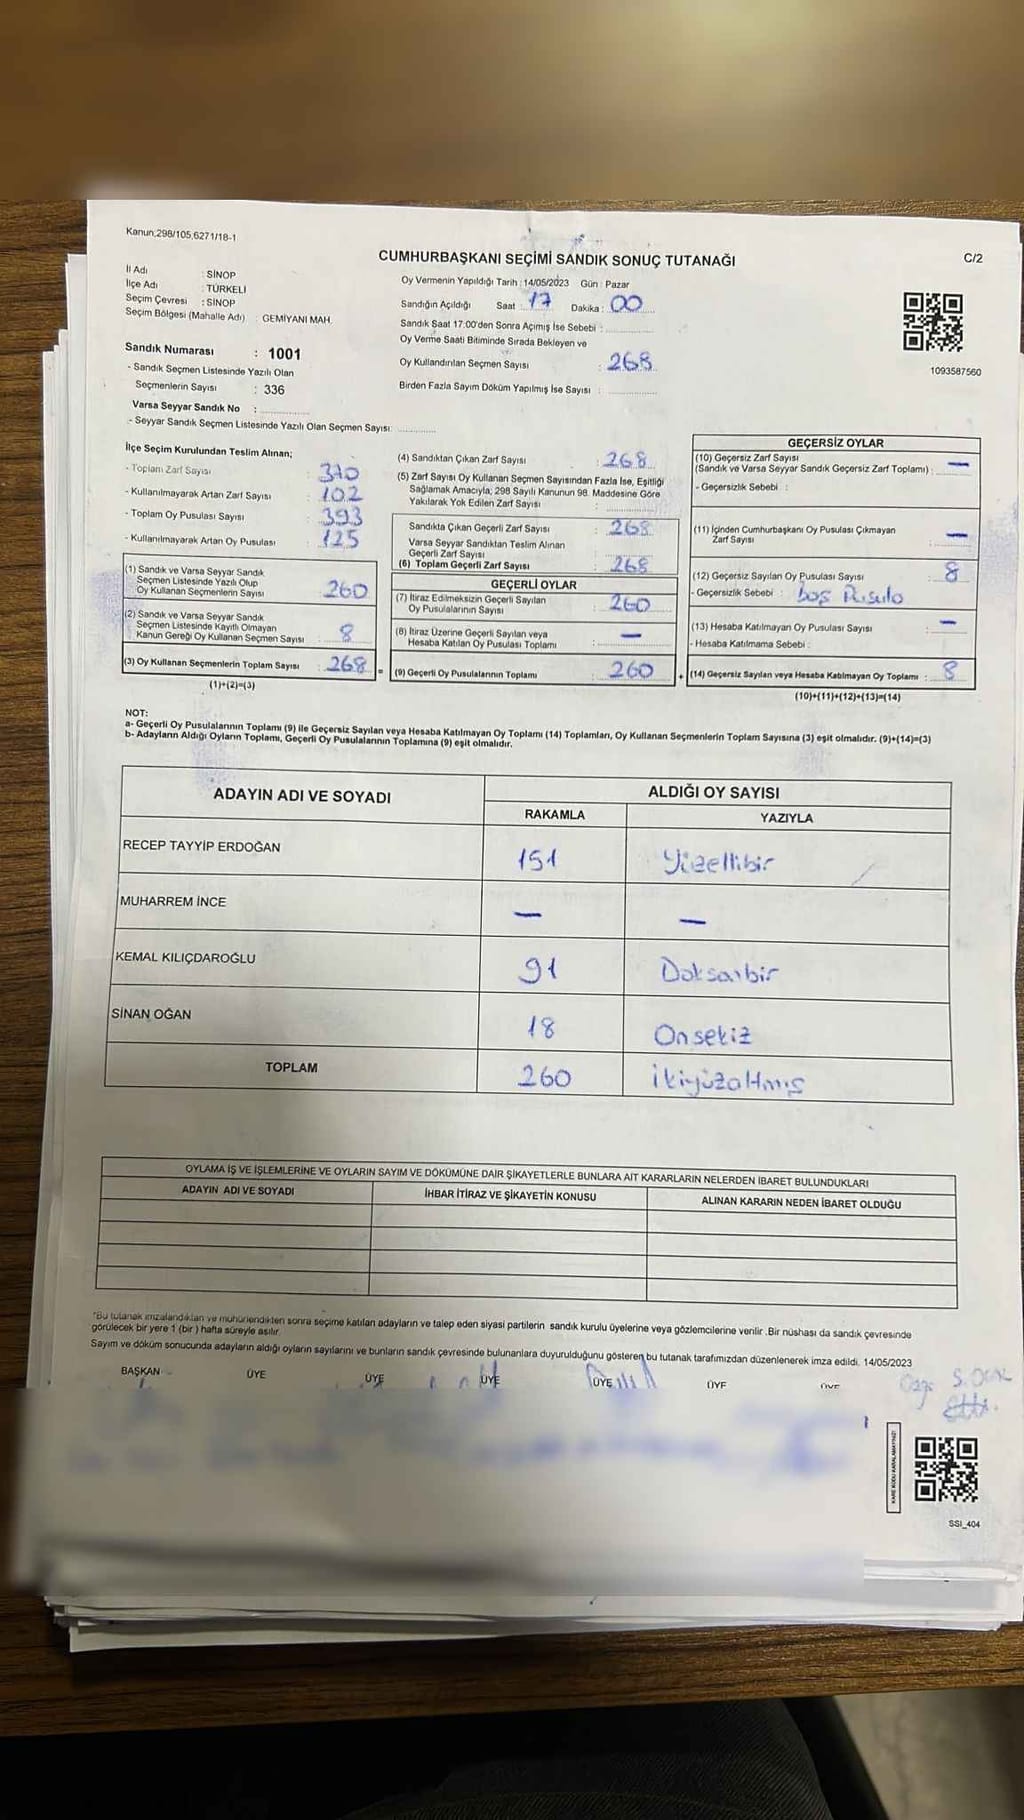 Kanun,298/105,6271/18-1
CUMHURBAŞKANI SEÇİMİ SANDIK SONUÇ TUTANAĞI
C/2
İl Adı : SİNOP
İlçe Adı : TÜRKELİ
Seçim Çevresi : SİNOP
Seçim Bölgesi (Mahalle Adı) : GEMİYANI MAH.
Sandık Numarası : 1001
- Sandık Seçmen Listesinde Yazılı Olan
Seçmenlerin Sayısı : 336
Varsa Seyyar Sandık No :
- Seyyar Sandık Seçmen Listesinde Yazılı Olan Seçmen Sayısı:
Oy Vermenin Yapıldığı Tarih : 14/05/2023 Gün : Pazar
Sandığın Açıldığı Saat : 17 Dakika : 00
Sandık Saat 17:00'den Sonra Açımış İse Sebebi :
Oy Verme Saati Bitiminde Sırada Bekleyen ve
Oy Kullandırılan Seçmen Sayısı : 268
Birden Fazla Sayım Döküm Yapılmış İse Sayısı :
1093587560
İlçe Seçim Kurulundan Teslim Alınan;
- Toplam Zarf Sayısı : 370
- Kullanılmayarak Artan Zarf Sayısı : 102
- Toplam Oy Pusulası Sayısı : 393
- Kullanılmayarak Artan Oy Pusulası : 125
(1) Sandık ve Varsa Seyyar Sandık
Seçmen Listesinde Yazılı Olup
Oy Kullanan Seçmenlerin Sayısı : 260
(2) Sandık ve Varsa Seyyar Sandık
Seçmen Listesinde Kayıtlı Olmayan
Kanun Gereği Oy Kullanan Seçmen Sayısı : 8
(3) Oy Kullanan Seçmenlerin Toplam Sayısı : 268 =
(1)+(2)=(3)
(4) Sandıktan Çıkan Zarf Sayısı : 268
(5) Zarf Sayısı Oy Kullanan Seçmen Sayısından Fazla İse, Eşitliği
Sağlamak Amacıyla; 298 Sayılı Kanunun 98. Maddesine Göre
Yakılarak Yok Edilen Zarf Sayısı :
Sandıkta Çıkan Geçerli Zarf Sayısı : 268
Varsa Seyyar Sandıktan Teslim Alınan
Geçerli Zarf Sayısı :
(6) Toplam Geçerli Zarf Sayısı : 268
GEÇERLİ OYLAR
(7) İtiraz Edilmeksizin Geçerli Sayılan
Oy Pusulalarının Sayısı : 260
(8) İtiraz Üzerine Geçerli Sayılan veya
Hesaba Katılan Oy Pusulası Toplamı : —
(9) Geçerli Oy Pusulalarının Toplamı : 260 +
GEÇERSİZ OYLAR
(10) Geçersiz Zarf Sayısı
(Sandık ve Varsa Seyyar Sandık Geçersiz Zarf Toplamı) : —
- Geçersizlik Sebebi :
(11) İçinden Cumhurbaşkanı Oy Pusulası Çıkmayan
Zarf Sayısı : —
(12) Geçersiz Sayılan Oy Pusulası Sayısı : 8
- Geçersizlik Sebebi : boş Pusula
(13) Hesaba Katılmayan Oy Pusulası Sayısı : —
- Hesaba Katılmama Sebebi :
(14) Geçersiz Sayılan veya Hesaba Katılmayan Oy Toplamı : 8
(10)+(11)+(12)+(13)=(14)
NOT:
a- Geçerli Oy Pusulalarının Toplamı (9) ile Geçersiz Sayılan veya Hesaba Katılmayan Oy Toplamı (14) Toplamları, Oy Kullanan Seçmenlerin Toplam Sayısına (3) eşit olmalıdır. (9)+(14)=(3)
b- Adayların Aldığı Oyların Toplamı, Geçerli Oy Pusulalarının Toplamına (9) eşit olmalıdır.
ADAYIN ADI VE SOYADI ALDIĞI OY SAYISI
RAKAMLA YAZIYLA
RECEP TAYYİP ERDOĞAN 151 Yüzellibir
MUHARREM İNCE — —
KEMAL KILIÇDAROĞLU 91 Doksanbir
SİNAN OĞAN 18 Onsekiz
TOPLAM 260 İkiyüzaltmış
OYLAMA İŞ VE İŞLEMLERİNE VE OYLARIN SAYIM VE DÖKÜMÜNE DAİR ŞİKAYETLERLE BUNLARA AİT KARARLARIN NELERDEN İBARET BULUNDUKLARI
ADAYIN ADI VE SOYADI İHBAR İTİRAZ VE ŞİKAYETİN KONUSU ALINAN KARARIN NEDEN İBARET OLDUĞU
*Bu tutanak imzalandıktan ve mühürlendikten sonra seçime katılan adayların ve talep eden siyasi partilerin sandık kurulu üyelerine veya gözlemcilerine verilir .Bir nüshası da sandık çevresinde
görülecek bir yere 1 (bir ) hafta süreyle asılır.
Sayım ve döküm sonucunda adayların aldığı oyların sayılarını ve bunların sandık çevresinde bulunanlara duyurulduğunu gösteren bu tutanak tarafımızdan düzenlenerek imza edildi. 14/05/2023
BAŞKAN ÜYE ÜYE ÜYE ÜYE ÜYE ÜYE
KARE KODU KARALAMAYINIZ!
SSI_404